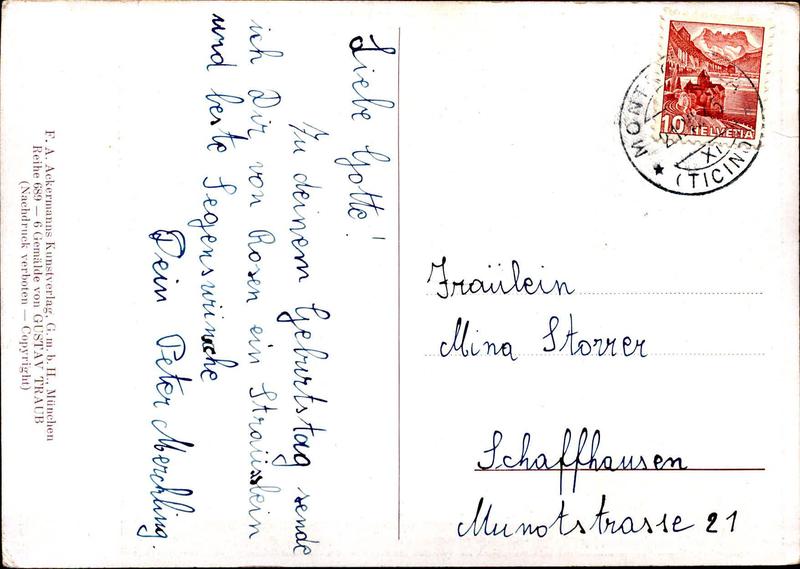 Liebe Gotte!
Zu deinem Geburtstag sende
ich Dir von Rosen ein Sträusslein
und beste Segenswünsche
Dein Peter Merchling.
F. A. Ackermanns Kunstverlag, G. m. b. H., München
Reihe 689 — 6 Gemälde von GUSTAV TRAUB
(Nachdruck verboten — Copyright)
10 HELVETIA
(TICINO)
XI
Fräulein
Mina Storrer
Schaffhausen
Munotstrasse 21